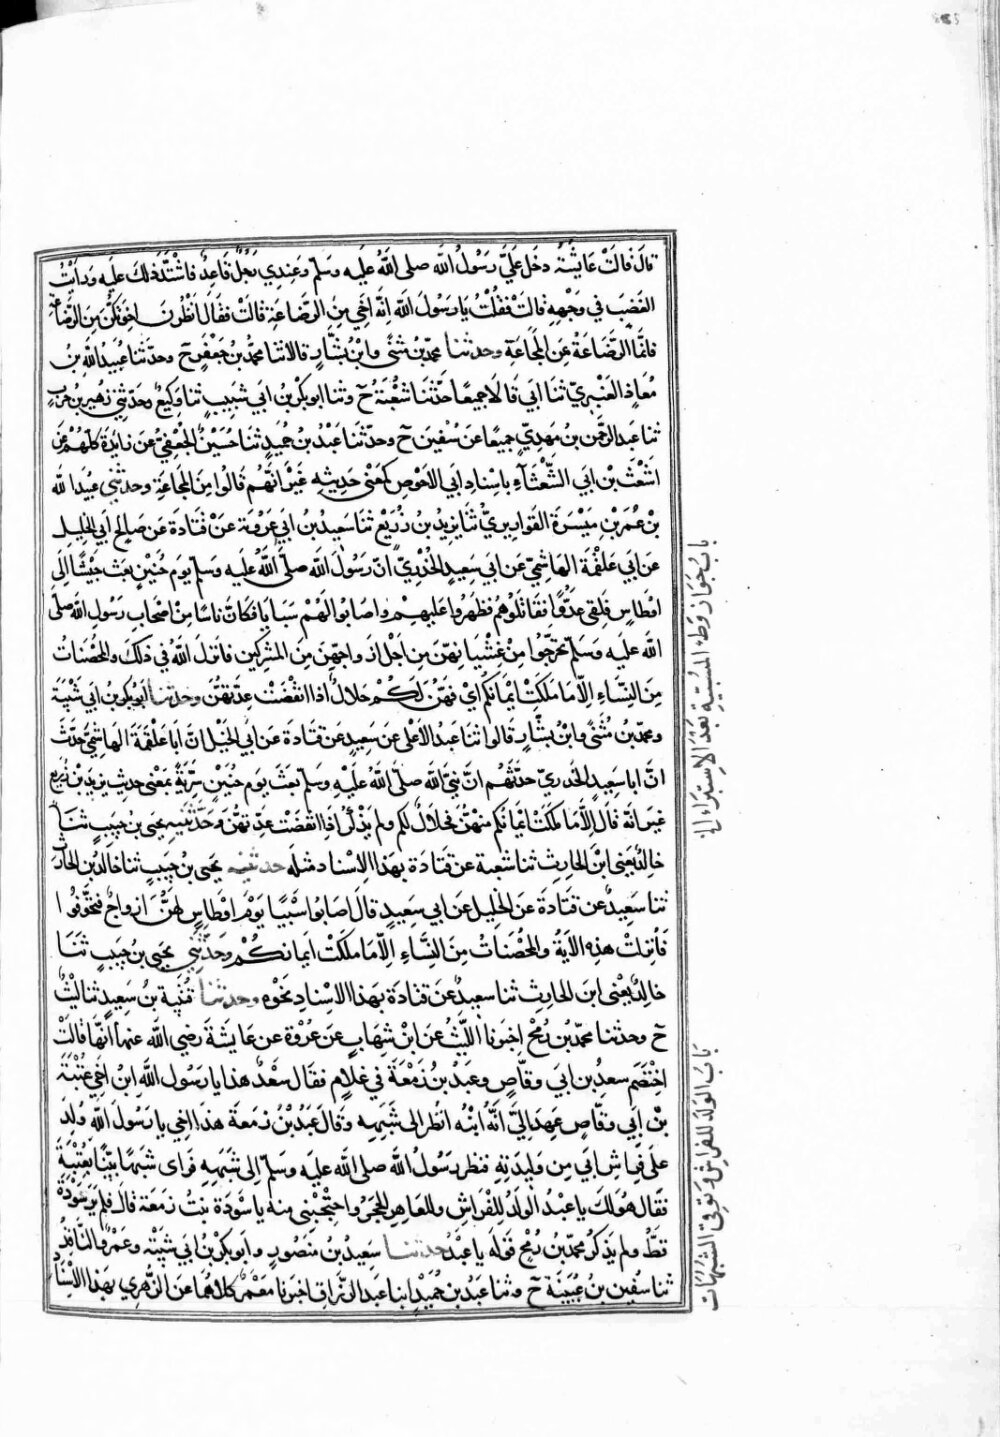 قال قالت عايشة دخل عليّ رسول الله صلى الله عليه وسلم وعندي رجل قاعد فاشتد ذلك عليه ورأيت
الغضب في وجهه قالت فقلت يا رسول الله انه اخي من الرضاعة قالت فقال انظرن اخوتكن من الرضاعة
فانما الرضاعة عن المجاعة وحدثنا محمد بن مثنى وابن بشار قالا ثنا محمد بن جعفر ح وحدثنا عبيد الله بن
معاذ العنبري ثنا ابي قالا جميعا حدثنا شعبة ح وثنا ابو بكر بن ابي شيبة ثنا وكيع وحدثني زهير بن حرب
ثنا عبد الرحمن بن مهدي جميعا عن سفين ح وحدثنا عبد بن حميد ثنا حسين الجعفي عن زايدة كلهم عن
اشعث بن ابي الشعثاء باسناد ابي الاحوص كمعنى حديثه غير انهم قالوا من المجاعة وحدثني عبيد الله
بن عمر بن ميسرة القواريري ثنا يزيد بن زريع ثنا سعيد بن ابي عروبة عن قتادة عن صالح ابي الخليل
عن ابي علقمة الهاشمي عن ابي سعيد الخدري ان رسول الله صلى الله عليه وسلم يوم حنين بعث جيشا الى
اوطاس فلقي عدوا فقاتلوهم فظهروا عليهم واصابوا لهم سبايا فكان ناسا من اصحاب رسول الله صلى
الله عليه وسلم تحرجوا من غشيانهن من اجل ازواجهن من المشركين فانزل الله في ذلك والمحصنات
من النساء الا ما ملكت ايمانكم اي فهن لكم حلال اذا انقضت عدتهن وحدثنا ابو بكر بن ابي شيبة
ومحمد بن مثنى وابن بشار قالوا ثنا عبد الاعلى عن سعيد عن قتادة عن ابي الخليل ان ابا علقمة الهاشمي حدث
ان ابا سعيد الخدري حدثهم ان نبي الله صلى الله عليه وسلم بعث يوم حنين سرية بمعنى حديث يزيد بن زريع
غير انه قال الا ما ملكت ايمانكم منهن فحلال لكم ولم يذكر اذا انقضت عدتهن وحدثنيه يحيى بن حبيب ثنا
خالد يعني ابن الحارث ثنا شعبة عن قتادة بهذا الاسناد مثله حدثنيه يحيى بن حبيب ثنا خالد بن الحارث
ثنا سعيد عن قتادة عن الخليل عن ابي سعيد قال اصابوا سبيا يوم اوطاس لهن ازواج فتخوفوا
فانزلت هذه الاية والمحصنات من النساء الا ما ملكت ايمانكم وحدثني يحيى بن حبيب ثنا
خالد يعني ابن الحارث ثنا سعيد عن قتادة بهذا الاسناد نحوه وحدثنا قتيبة بن سعيد ثنا ليث
ح وحدثنا محمد بن رمح اخبرنا الليث عن ابن شهاب عن عروة عن عايشة رضي الله عنها انها قالت
اختصم سعد بن ابي وقاص وعبد بن زمعة في غلام فقال سعد هذا يا رسول الله ابن اخي عتبة
بن ابي وقاص عهد الي انه ابنه انظر الى شبهه وقال عبد بن زمعة هذا اخي يا رسول الله ولد
على فراش ابي من وليدته فنظر رسول الله صلى الله عليه وسلم الى شبهه فراى شبها بينا بعتبة
فقال هو لك يا عبد الولد للفراش وللعاهر الحجر واحتجبي منه يا سودة بنت زمعة قال فلم ير سودة
قط ولم يذكر محمد بن رمح قوله يا عبد حدثنا سعيد بن منصور وابو بكر بن ابي شيبة وعمرو الناقد
ثنا سفين بن عيينة ح وثنا عبد بن حميد انبا عبد الرزاق اخبرنا معمر كلاهما عن الزهري بهذا الاسناد
باب جواز وطء المسبية بعد الاستبراء الخ
باب الولد للفراش وتوقي الشبهات